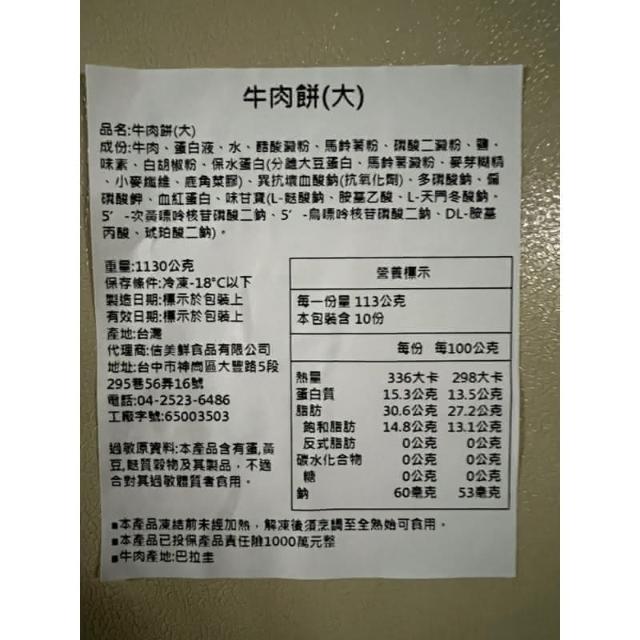 牛肉餅(大)
品名:牛肉餅(大)
成份:牛肉、蛋白液、水、醋酸澱粉、馬鈴薯粉、磷酸二澱粉、鹽、
味素、白胡椒粉、保水蛋白(分離大豆蛋白、馬鈴薯澱粉、麥芽糊精
、小麥纖維、鹿角菜膠)、異抗壞血酸鈉(抗氧化劑)、多磷酸鈉、偏
磷酸鉀、血紅蛋白、味甘寶(L-麩酸鈉、胺基乙酸、L-天門冬酸鈉、
5’-次黃嘌呤核苷磷酸二鈉、5’-鳥嘌呤核苷磷酸二鈉、DL-胺基
丙酸、琥珀酸二鈉)。
重量:1130公克
保存條件:冷凍-18°C以下
製造日期:標示於包裝上
有效日期:標示於包裝上
產地:台灣
代理商:信美鮮食品有限公司
地址:台中市神崗區大豐路5段
295巷56弄16號
電話:04-2523-6486
工廠字號:65003503
過敏原資料:本產品含有蛋,黃
豆,麩質穀物及其製品，不適
合對其過敏體質者食用。
營養標示
每一份量 113公克
本包裝含 10份
每份 每100公克
熱量 336大卡 298大卡
蛋白質 15.3公克 13.5公克
脂肪 30.6公克 27.2公克
飽和脂肪 14.8公克 13.1公克
反式脂肪 0公克 0公克
碳水化合物 0公克 0公克
糖 0公克 0公克
鈉 60毫克 53毫克
■本產品凍結前未經加熱，解凍後須烹調至全熟始可食用。
■本產品已投保產品責任險1000萬元整
■牛肉產地:巴拉圭